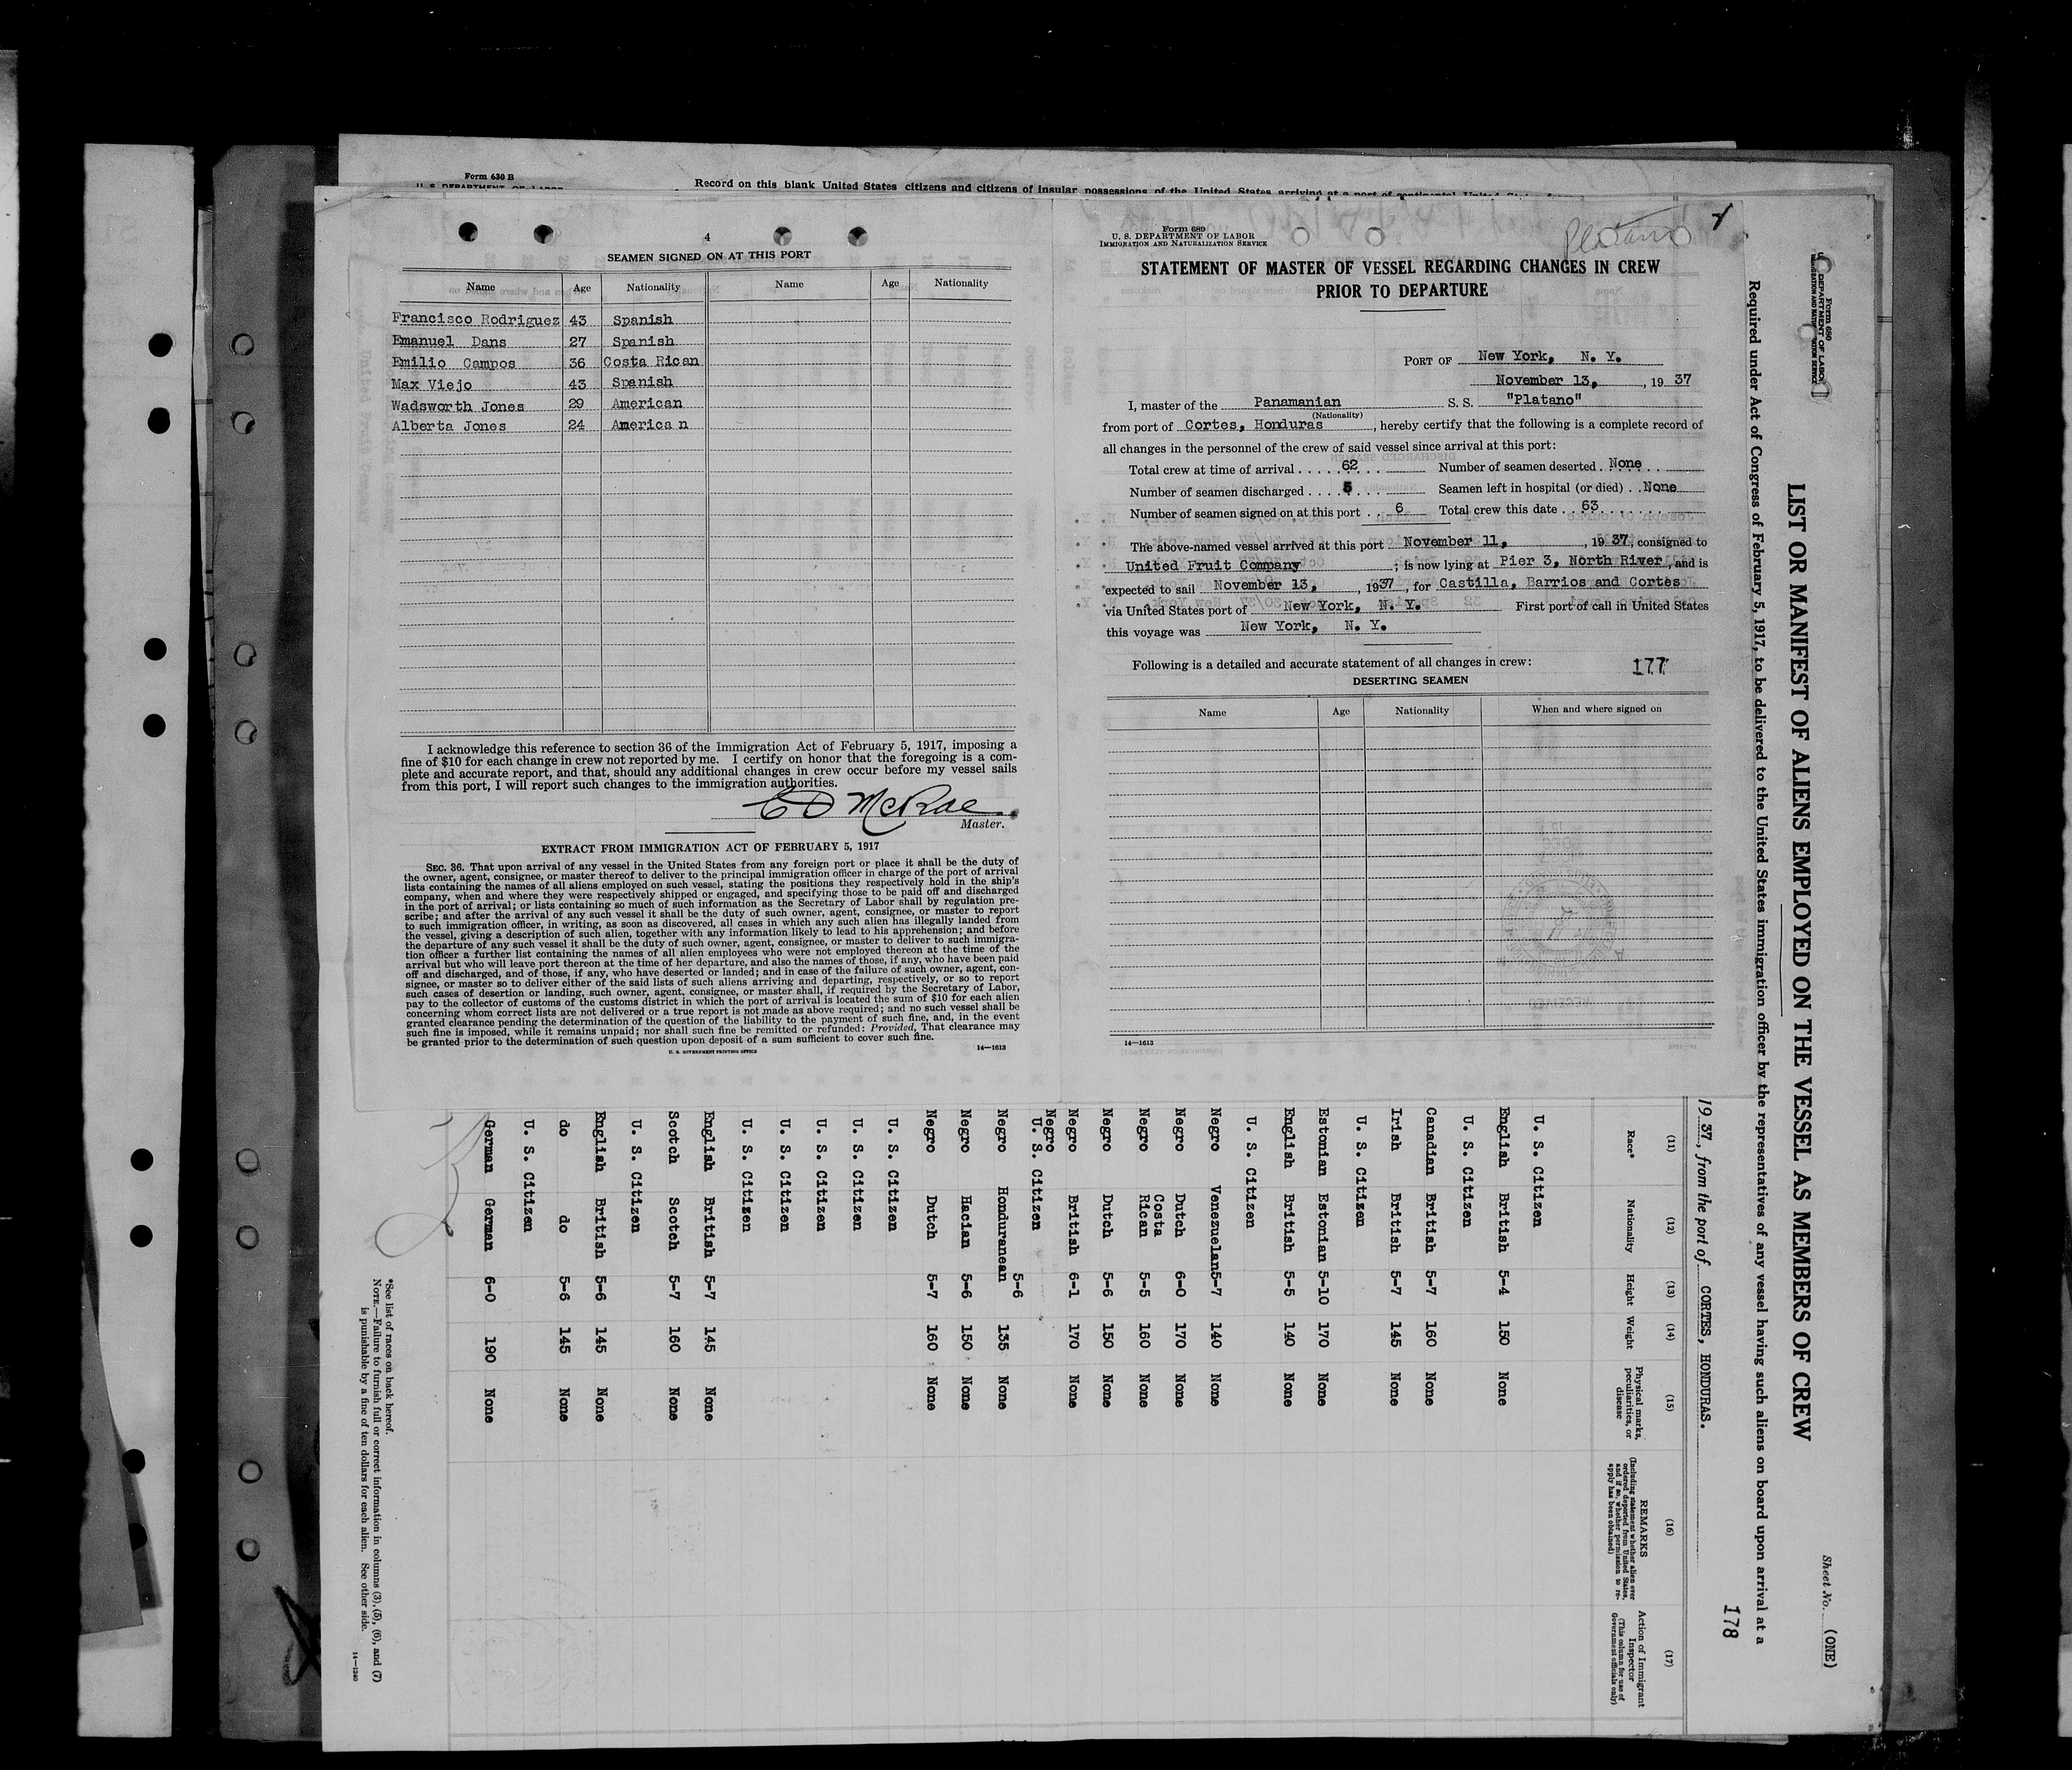 Form 630 B
Record on this blank United States citizens and citizens of insular possessions of the United States arriving at a port of continental United States
4
SEAMEN SIGNED ON AT THIS PORT
Name Age Nationality Name Age Nationality
Francisco Rodriguez 43 Spanish
Emanuel Dans 27 Spanish
Emilio Campos 36 Costa Rican
Max Viejo 43 Spanish
Wadsworth Jones 29 American
Alberta Jones 24 American
I acknowledge this reference to section 36 of the Immigration Act of February 5, 1917, imposing a
fine of $10 for each change in crew not reported by me. I certify on honor that the foregoing is a com-
plete and accurate report, and that, should any additional changes in crew occur before my vessel sails
from this port, I will report such changes to the immigration authorities.
C D McRae
Master.
EXTRACT FROM IMMIGRATION ACT OF FEBRUARY 5, 1917
SEC. 36. That upon arrival of any vessel in the United States from any foreign port or place it shall be the duty of
the owner, agent, consignee, or master thereof to deliver to the principal immigration officer in charge of the port of arrival
lists containing the names of all aliens employed on such vessel, stating the positions they respectively hold in the ship's
company, when and where they were respectively shipped or engaged, and specifying those to be paid off and discharged
in the port of arrival; or lists containing so much of such information as the Secretary of Labor shall by regulation pre-
scribe; and after the arrival of any such vessel it shall be the duty of such owner, agent, consignee, or master to report
to such immigration officer, in writing, as soon as discovered, all cases in which any such alien has illegally landed from
the vessel, giving a description of such alien, together with any information likely to lead to his apprehension; and before
the departure of any such vessel it shall be the duty of such owner, agent, consignee, or master to deliver to such immigra-
tion officer a further list containing the names of all alien employees who were not employed thereon at the time of the
arrival but who will leave port thereon at the time of her departure, and also the names of those, if any, who have been paid
off and discharged, and of those, if any, who have deserted or landed; and in case of the failure of such owner, agent, con-
signee, or master so to deliver either of the said lists of such aliens arriving and departing, respectively, or so to report
such cases of desertion or landing, such owner, agent, consignee, or master shall, if required by the Secretary of Labor,
pay to the collector of customs of the customs district in which the port of arrival is located the sum of $10 for each alien
concerning whom correct lists are not delivered or a true report is not made as above required; and no such vessel shall be
granted clearance pending the determination of the question of the liability to the payment of such fine, and, in the event
such fine is imposed, while it remains unpaid; nor shall such fine be remitted or refunded: Provided, That clearance may
be granted prior to the determination of such question upon deposit of a sum sufficient to cover such fine.
U. S. GOVERNMENT PRINTING OFFICE 14—1613
Platano
Form 689
U. S. DEPARTMENT OF LABOR
IMMIGRATION AND NATURALIZATION SERVICE
STATEMENT OF MASTER OF VESSEL REGARDING CHANGES IN CREW
PRIOR TO DEPARTURE
PORT OF New York, N. Y.
November 13, , 19 37
I, master of the Panamanian S. S. "Platano"
(Nationality)
from port of Cortes, Honduras , hereby certify that the following is a complete record of
all changes in the personnel of the crew of said vessel since arrival at this port:
Total crew at time of arrival . . . . 62 Number of seamen deserted . None
Number of seamen discharged . . . . 5 Seamen left in hospital (or died) . . None
Number of seamen signed on at this port . . 6 Total crew this date . . 63
The above-named vessel arrived at this port November 11, , 19 37, consigned to
United Fruit Company ; is now lying at Pier 3, North River, and is
expected to sail November 13, , 1937 , for Castilla, Barrios and Cortes
via United States port of New York, N. Y. First port of call in United States
this voyage was New York, N. Y.
Following is a detailed and accurate statement of all changes in crew: 177
DESERTING SEAMEN
Name Age Nationality When and where signed on
14—1613
Form 680
U. S. DEPARTMENT OF LABOR
IMMIGRATION AND NATURALIZATION SERVICE
Sheet No. (ONE)
LIST OR MANIFEST OF ALIENS EMPLOYED ON THE VESSEL AS MEMBERS OF CREW
Required under Act of Congress of February 5, 1917, to be delivered to the United States immigration officer by the representatives of any vessel having such aliens on board upon arrival at a
178
19 37, from the port of CORTES, HONDURAS.
(11) (12) (13) (14) (15) (16) (17)
Race* Nationality Height Weight Physical marks, peculiarities, or disease REMARKS (Including statement whether alien ever ordered deported from United States, and if so, whether permission to re-apply has been obtained) Action of Immigrant Inspector (This column for use of Government officials only)
U. S. Citizen
English British 5-4 150 None
U. S. Citizen
Canadian British 5-7 160 None
Irish British 5-7 145 None
U. S. Citizen
Estonian Estonian 5-10 170 None
English British 5-5 140 None
U. S. Citizen
Negro Venezuelan 5-7 140 None
Negro Dutch 6-0 170 None
Negro Costa Rican 5-5 160 None
Negro Dutch 5-6 150 None
Negro British 6-1 170 None
Negro
U. S. Citizen
Negro Honduranean 5-6 135 None
Negro Hacian 5-6 150 None
Negro Dutch 5-7 160 None
U. S. Citizen
U. S. Citizen
U. S. Citizen
U. S. Citizen
U. S. Citizen
English British 5-7 145 None
Scotch Scotch 5-7 160 None
U. S. Citizen
English British 5-6 145 None
do do 5-6 145 None
U. S. Citizen
German German 6-0 190 None
*See list of races on back hereof.
NOTE.—Failure to furnish full or correct information in columns (3), (5), (6), and (7)
is punishable by a fine of ten dollars for each alien. See other side.
14—1240